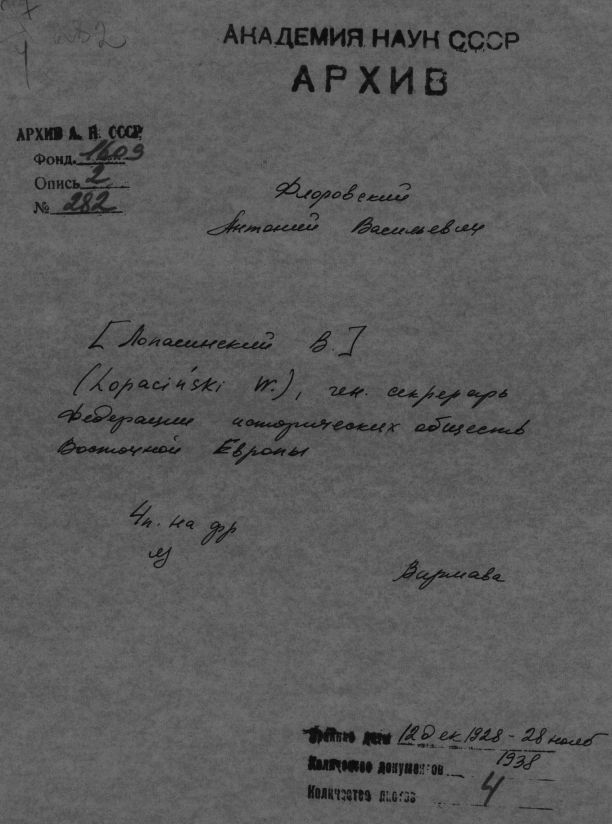 282
АКАДЕМИЯ НАУК СССР
АРХИВ
АРХИВ А. Н. СССР
Фонд. 1609
Опись 2
№ 282
Флоровский
Антоний Васильевич
[Лопасинский В.]
(Łopaciński W.), ген. секретарь
Федерации исторических обществ
Восточной Европы
4 п. на фр
яз
Варшава
Крайние даты 12 дек 1928 - 28 нояб
1938
Количество документов
Количество листов 4